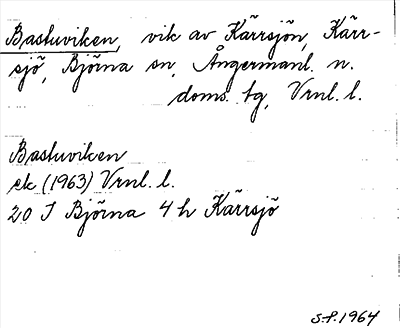 Bastuviken, vik av Kärrsjön, Kärr-
sjö, Björna sn, Ångermanl. n.
doms. tg, Vrnl. l.
Bastuviken
ek (1963) Vrnl. l.
20 J Björna 4 h Kärrsjö
S.P. 1964